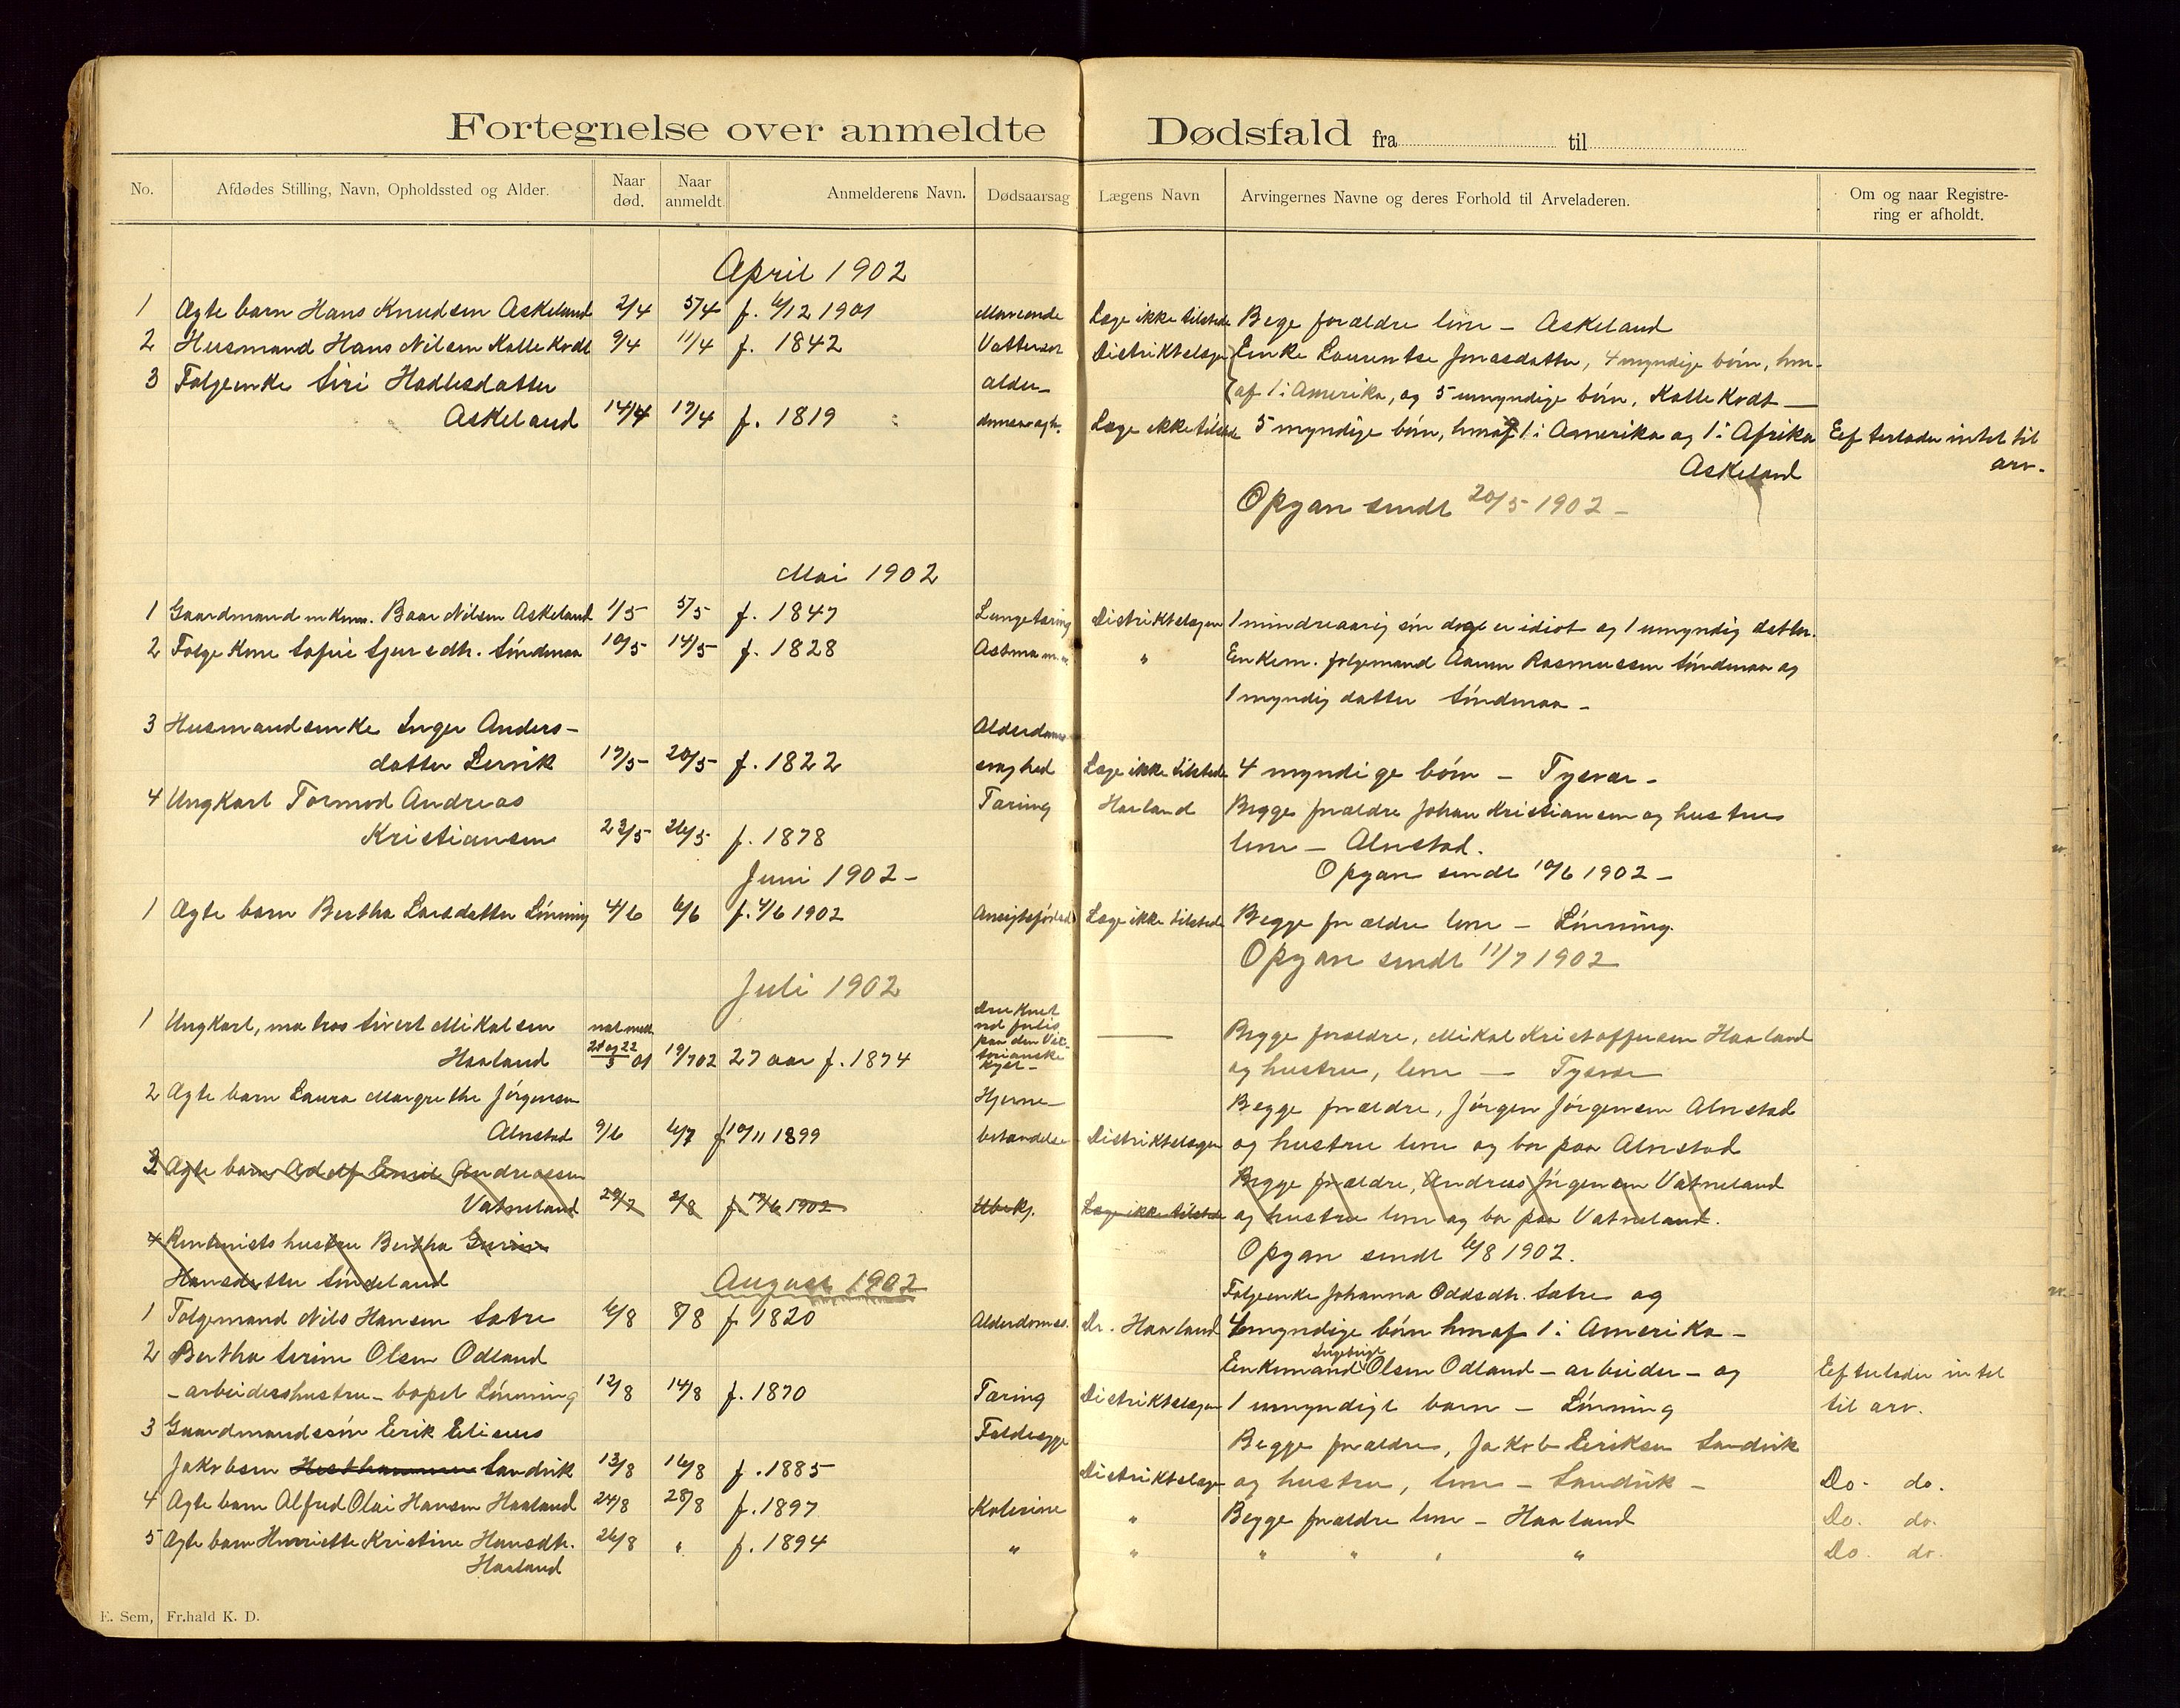 Fortegnelse over anmeldte Dødsfald fra til
No. Afdødes Stilling, Navn, Opholdssted og Alder. Naar død. Naar anmeldt. Anmelderens Navn. Dødsaarsag Lægens Navn Arvingernes Navne og deres Forhold til Arveladeren. Om og naar Registrering er afholdt.
April 1902
1 Ægte barn Hans Knudsen Askeland 2/4 5/4 f. 6/12 1901 Læge ikke tilstede Bege forældre leve – Askeland
2 Husmand Hans Nilsen Kallekodt 9/4 11/4 f. 1842 Vattersot Distriktslægen Enke Laurentse Jonasdatter, 4 myndige børn, hvor-
af 1 i Amerika, og 5 umyndige børn, Kallekodt –
3 Følgeenke Siri Hadlesdatter alder-
Askeland 14/4 17/4 f. 1819 Læge ikke tilstede 5 myndige børn, hvoraf 1 i Amerika og 1 i Afrika Eefterlader intet til
Askeland arv.
Opgave sendt 20/5 1902 –
Mai 1902
1 Gaardmand enkem. Baar Nilsen Askeland 1/5 5/5 f. 1847 Lungetæring Distriktslægen 1 mindreaarig søn døgt er idiot og 1 umyndig datter.
2 Følgekone Sofie Sjursdtr. Søndenaa 10/5 14/5 f. 1828 Astma " Enkem. følgemand Aamu Rasmussen Søndenaa og
1 myndig datter Søndenaa –
3 Husmandsenke Inger Anders- Alderdoms
datter Lervik 17/5 20/5 f. 1822 svaghed Læge ikke tilstede 4 myndige børn – Tysvær –
4 Ungkarl Tormod Andreas Tæring Haaland Begge forældre Johan Kristiansen og hustru
Kristiansen 23/5 26/5 f. 1878 leve – Alvestad.
Juni 1902 – Opgave sendt 10/6 1902 –
1 Ægte barn Bertha Larsdatter Lønning 4/6 6/6 f. 4/6 1902 Ansigtsfødsel Læge ikke tilstede Begge forældre leve – Lønning.
Opgave sendt 11/7 1902
Juli 1902
1 Ungkarl, matros Sivert Mikalsen nat mell. Druknet ved forlis Begge forældre, Mikal Kristoffersen Haaland
Haaland 21 og 22/5 01 19/7 02 27 aar f. 1874 paa den Victorianske kyst – og hustru, leve – Tysvær
2 Ægte barn Laura Margrethe Jørgensen Hjerne- Begge forældre, Jørgen Jørgensen Alvestad
Alvestad 9/6 6/7 f 10/11 1899 betændelse Distriktslægen og hustru leve og bor paa Alvestad
3 Ægte barn Adolf Emil Andreassen Begge forældre, Andreas Jørgensen Vatneland
Vatneland 29/7 2/8 f 17/6 1902 Ubekj. Læge ikke tilstede og hustru leve og bor paa Vatneland.
4 Rentenists hustru Bertha Gurine Opgave sendt 6/8 1902.
Hansdatter Søndeland August 1902 Følgeenke Johanna Oddsdtr. Sætre og
1 Følgemand Nils Hansen Sætre 6/8 8/8 f 1820 Alderdomss. Dr. Haaland 4 myndige børn hvoraf 1 i Amerika –
2 Bertha Serine Olsen Odland Enkemand Ingebrigt Olsen Odland – arbeider – og Eefterlader intet
– arbeidershustru – bopæl Lønning 12/8 14/8 f. 1870 Tæring Distriktslægen 1 umyndigt barn – Lønning til arv.
3 Gaardmandssøn Erik Eliseus Faldesyge Begge forældre, Jakob Eeriksen Sandvik
Jakobsen Hesthammer Sandvik 13/8 16/8 f. 1885 Distriktslægen og hustru, leve – Sandvik – Do. do.
4 Ægte barn Alfred Olai Hansen Haaland 24/8 28/8 f. 1897 Kolerine " Begge forældre leve – Haaland Do. do.
5 Ægte barn Henriette Kristine Hansdtr. 26/8 " f. 1894 " " " " " " Do. do.
Haaland
E. Sem, Fr.hald K. D.